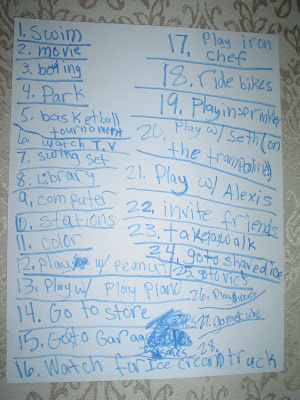 1. Swim
2. movie
3. boating
4. Park
5. basketball
tournament
6. watch T.V
7. swing set
8. Library
9. computer
10. stations
11. color
12. Play w/ Peanut
13. Play w/ Play
14. Go to store
15. Go to Garage
16. Watch for Ice cream truck
17. Play iron
chef
18. ride bikes
19. Play in sprinkler
20. Play w/ Seth (on
the trampoline)
21. Play w/ Alexis
22. invite friends
23. take a walk
24. go to shared ice
25. go to rick's
26. Playhouse
27. game cube
28.